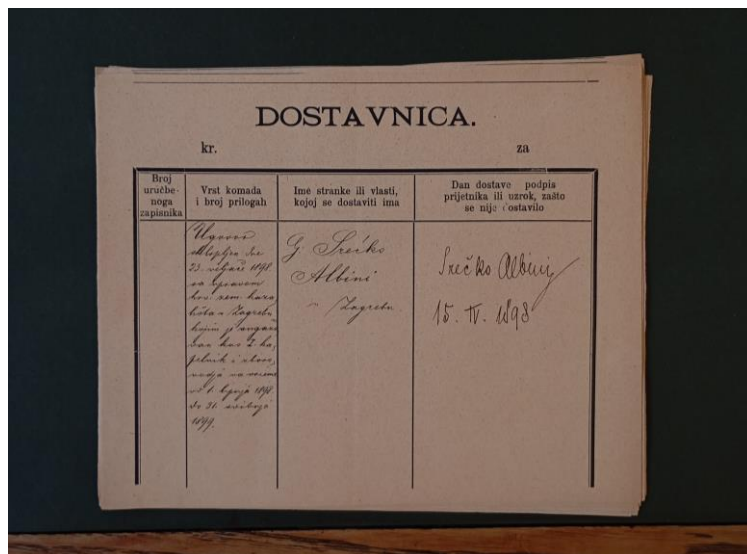 DOSTAVNICA.
kr. za
Broj
uručbe-
noga
zapisnika
Vrst komada
i broj prilogah
Ime stranke ili vlasti,
kojoj se dostaviti ima
Dan dostave podpis
prijetnika ili uzrok, zašto
se nije dostavilo
Ugovor
sklopljen dne
23. veljače 1898.
sa upravom
hrv. zem. kaza
lišta u Zagrebu
kojim je
i
od 1. lipnja 1898.
do 31. svibnja
1899.
G. Srećko
Albini
u Zagrebu
Srećko Albini
15. IV. 1898